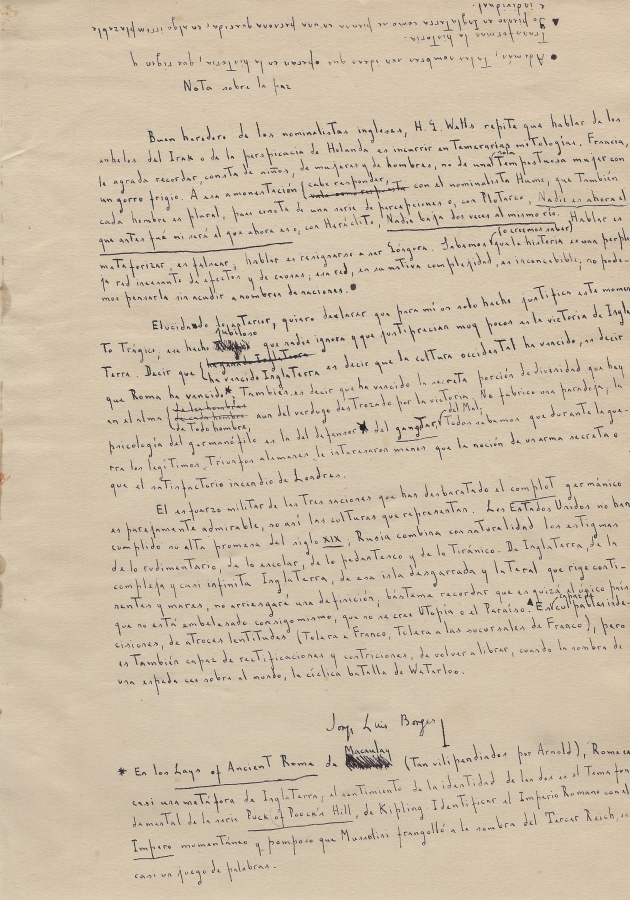 ● Además, tales nombres son ideas que operan en la historia, que rigen y
transforman la historia.
▲ Yo pienso en Inglaterra como se piensa en una persona querida, en algo irremplazable
e individual.
Nota sobre la paz
Buen heredero de los nominalistas ingleses, H. G. Wells repite que hablar de los
anhelos del Irak o de la perspicacia de Holanda es incurrir en temerarias mitologías. Francia,
le agrada recordar, consta de niños, de mujeres y de hombres, no de una sola tempestuosa mujer con
un gorro frigio. A esa amonestación cabe responder, con el nominalista Hume, que también
cada hombre es plural, pues consta de una serie de percepciones o, con Plutarco, Nadie es ahora el
que antes fué ni será el que ahora es o, con Heráclito, Nadie baja dos veces al mismo río. Hablar es
metaforizar, es falsear; hablar es resignarse a ser Góngora. Sabemos (o creemos saber) que la historia es una perple
ja red incesante de efectos y de causas; esa red, en su nativa complejidad, es inconcebible; no pode-
mos pensarla sin acudir a nombres de naciones. ●
Elucidado lo anterior, quiero declarar que para mí un solo hecho justifica este momen
to trágico; ese hecho jubiloso que nadie ignora y que justiprecian muy pocos es la victoria de Ingla
terra. Decir que ha vencido Inglaterra es decir que la cultura occidental ha vencido, es decir
que Roma ha vencido*. También es decir que ha vencido la secreta porción de divinidad que hay
en el alma de todo hombre, aun del verdugo destrozado por la victoria. No fabrico una paradoja; la
psicología del germanófilo es la del defensor del gangster, del Mal; todos sabemos que durante la gue-
rra los legítimos triunfos alemanes le interesaron menos que la noción de un arma secreta o
que el satisfactorio incendio de Londres.
El esfuerzo militar de las tres naciones que han desbaratado el complot germánico
es parejamente admirable, no así las culturas que representan. Los Estados Unidos no han
cumplido su alta promesa del siglo XIX; Rusia combina con naturalidad los estigmas
de lo rudimentario, de lo escolar, de lo pedantesco y de lo tiránico. De Inglaterra, de la
compleja y casi infinita Inglaterra, de esa isla desgarrada y lateral que rige conti-
nentes y mares, no arriesgaré una definición; básteme recordar que es quizá el único país
que no está embelesado consigo mismo, que no se cree Utopía o el Paraíso. ▲ Es capaz de culpables inde-
cisiones, de atroces lentitudes (tolera a Franco, tolera a las sucursales de Franco), pero
es también capaz de rectificaciones y contriciones, de volver a librar, cuando la sombra de
una espada cae sobre el mundo, la cíclica batalla de Waterloo.
Jorge Luis Borges
* En los Lays of Ancient Rome de Macaulay (tan vilipendiados por Arnold), Roma es
casi una metáfora de Inglaterra; el sentimiento de la identidad de las dos es el tema fun
damental de la serie Puck of Pook's Hill, de Kipling. Identificar el Imperio Romano con el
Impero momentáneo y pomposo que Mussolini frangolló a la sombra del Tercer Reich, es
casi un juego de palabras.